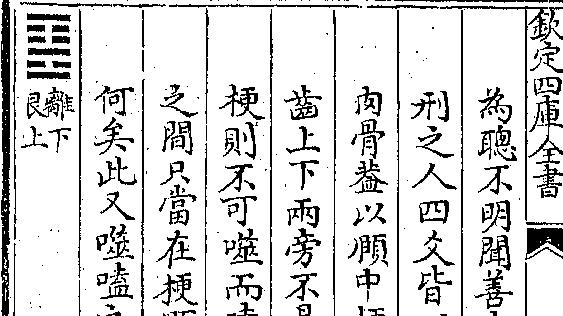 欽定四庫全書
為聰不明聞善
刑之人四爻皆
肉骨葢以頤中
齒上下兩旁不
梗則不可噬而
之間只當在梗
何矣此又噬嗑
䷕離下
艮上